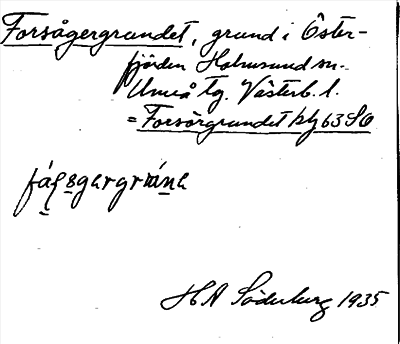 Forsågergrundet, grund i Öster-
fjärden Holmsund sn.
Umeå tg. Västerb. l.
= Forsörgrundet bly 63 SO
H A Söderberg 1935